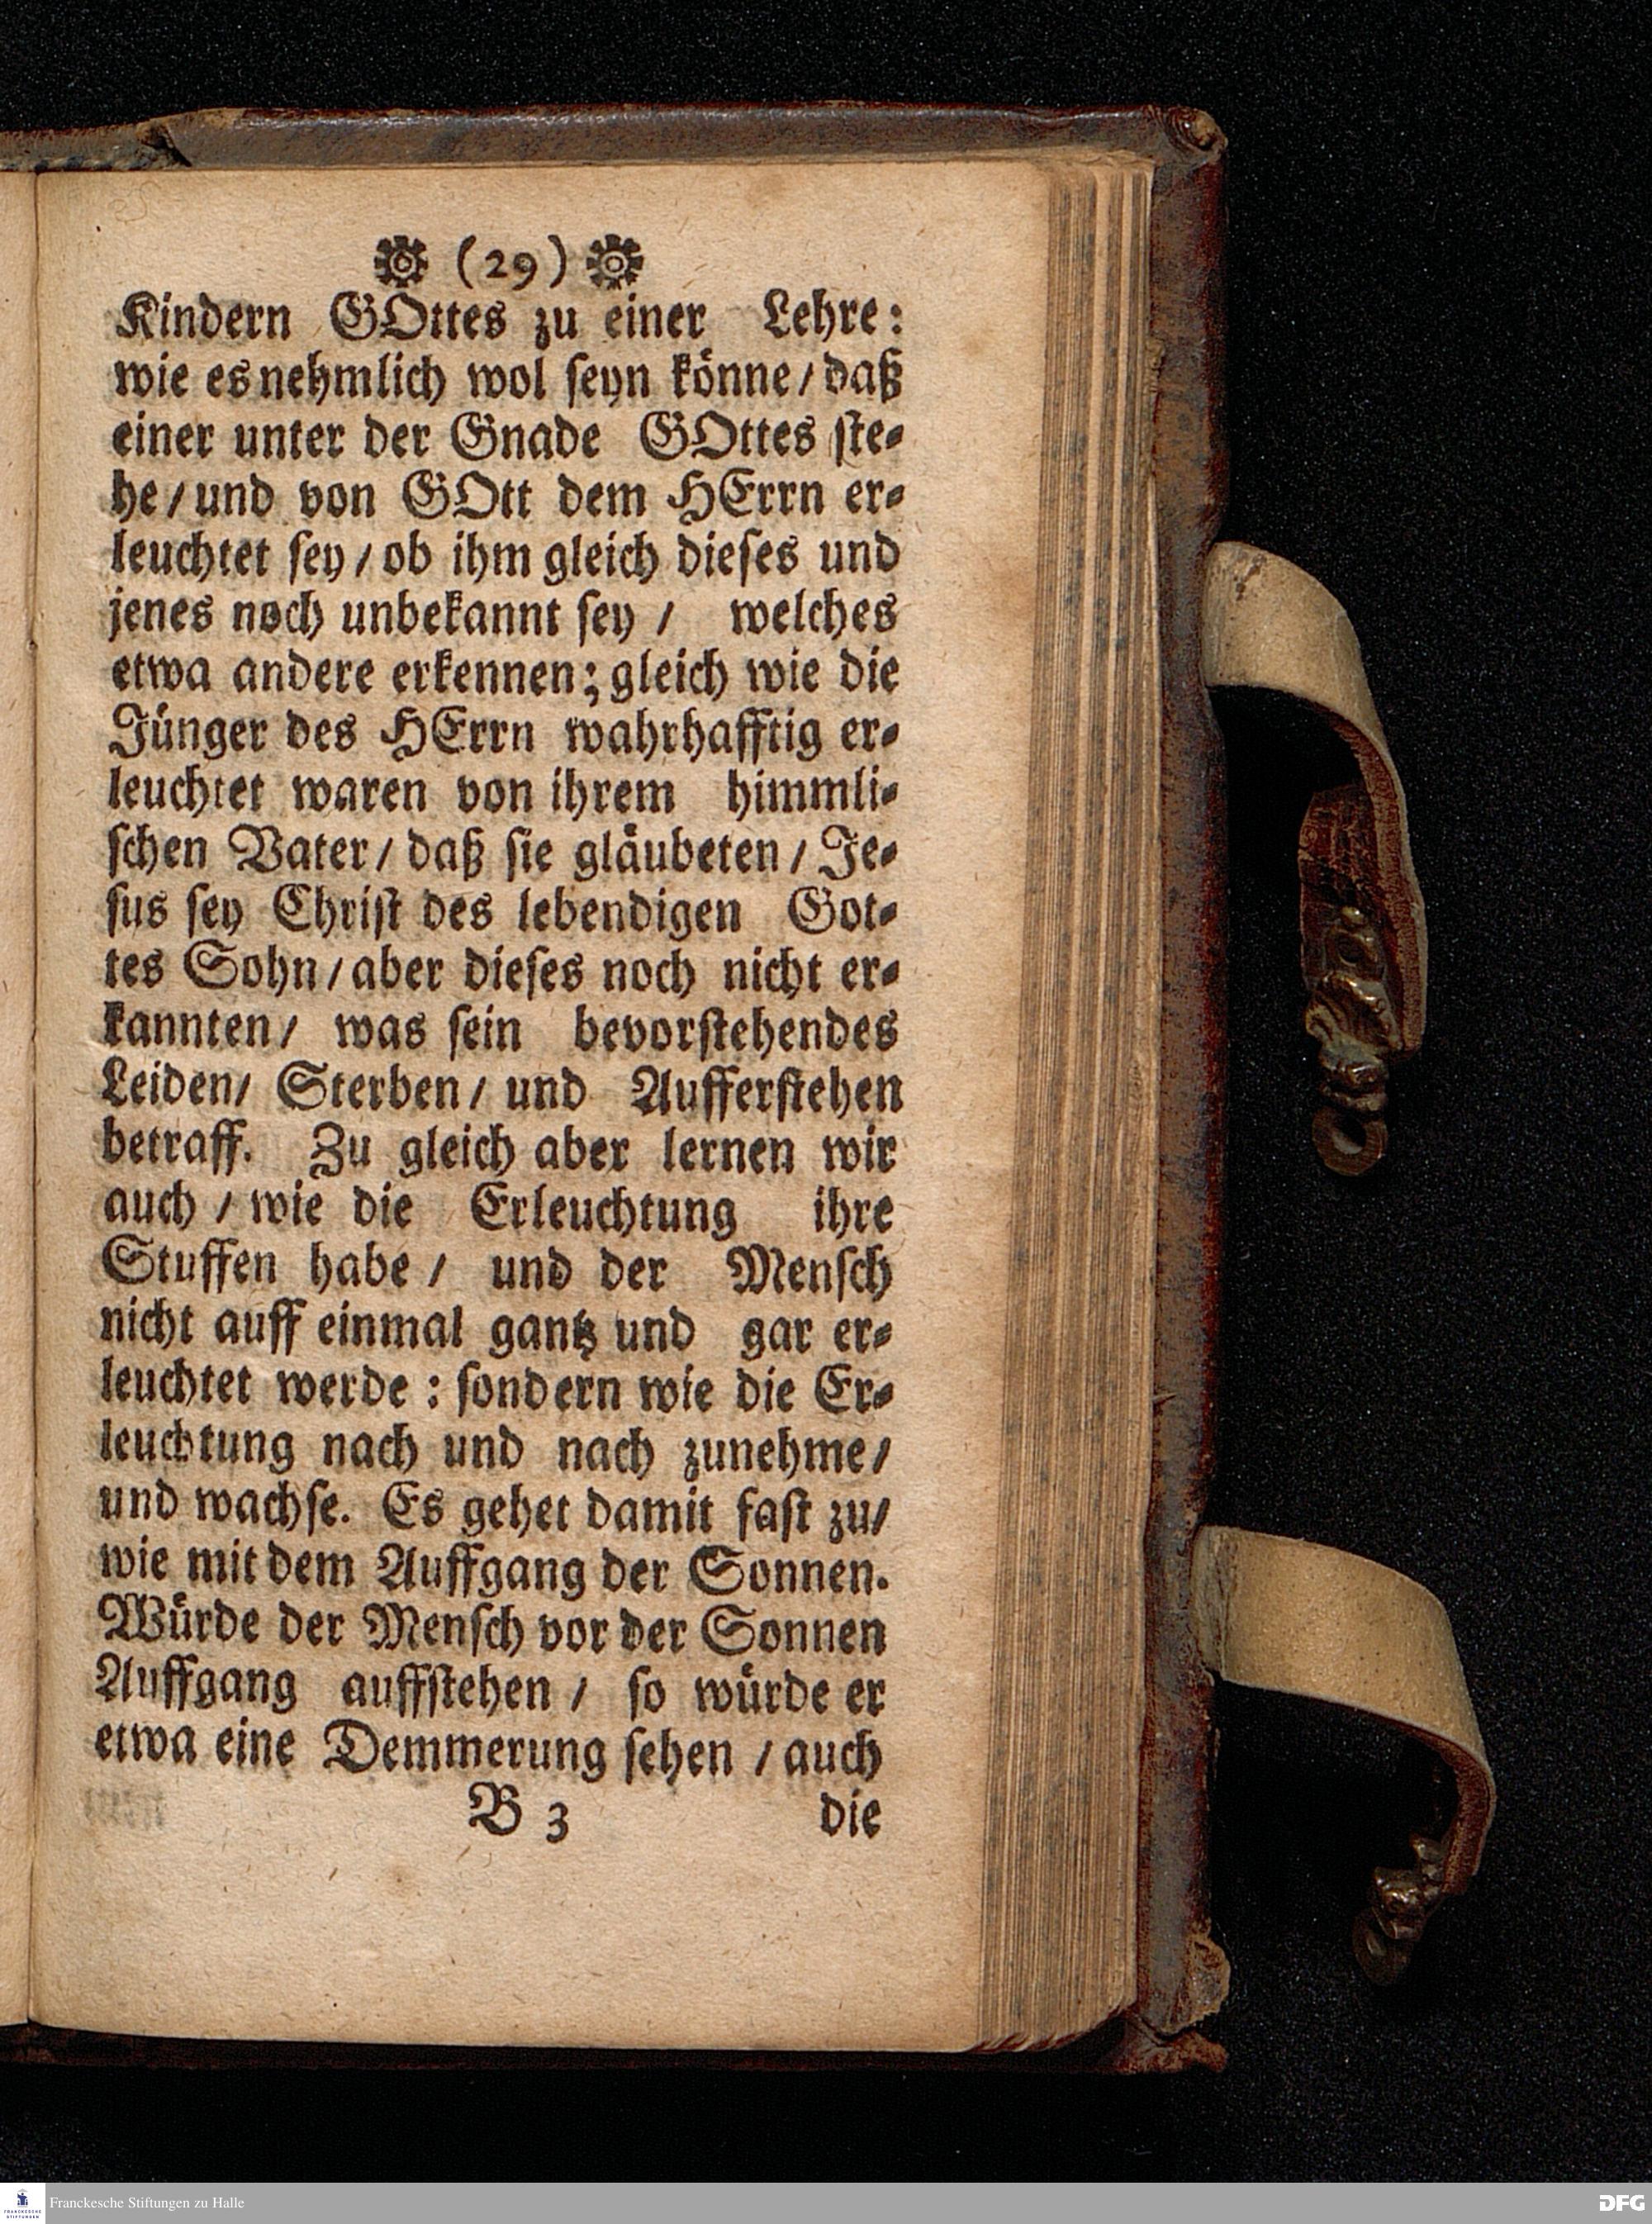 (29)
Kindern GOttes zu einer Lehre:
wie es nehmlich wol seyn könne / daß
einer unter der Gnade GOttes ste-
he / und von GOtt dem HErrn er-
leuchtet sey / ob ihm gleich dieses und
jenes noch unbekannt sey / welches
etwa andere erkennen; gleich wie die
Jünger des HErrn wahrhafftig er-
leuchtet waren von ihrem himmli-
schen Vater / daß sie gläubeten / Je-
sus sey Christ des lebendigen Got-
tes Sohn / aber dieses noch nicht er-
kannten / was sein bevorstehendes
Leiden / Sterben / und Aufferstehen
betraff. Zu gleich aber lernen wir
auch / wie die Erleuchtung ihre
Stuffen habe / und der Mensch
nicht auff einmal gantz und gar er-
leuchtet werde : sondern wie die Er-
leuchtung nach und nach zunehme /
und wachse. Es gehet damit fast zu /
wie mit dem Auffgang der Sonnen.
Würde der Mensch vor der Sonnen
Auffgang auffstehen / so würde er
etwa eine Demmerung sehen / auch
B 3 die
Franckesche Stiftungen zu Halle
DFG